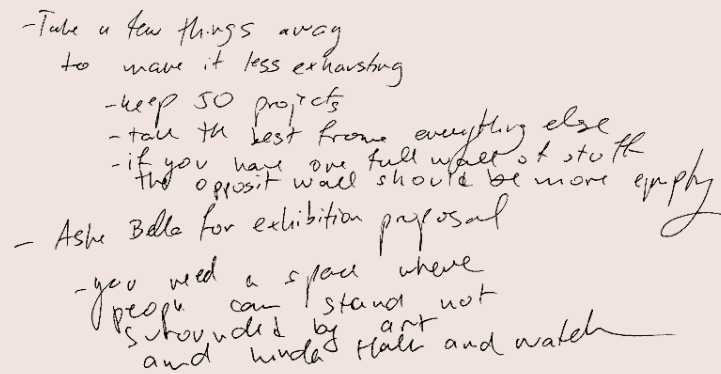 -Take a few things away
to make it less exhausting
-keep 50 projects
-take the best frome everything else
-if you have one full wall of stuff
the opposit wall should be more empty
- Aske Bella for exhibition proposal
-you need a space where
people can stand not
surounded by art
and kinda and watch